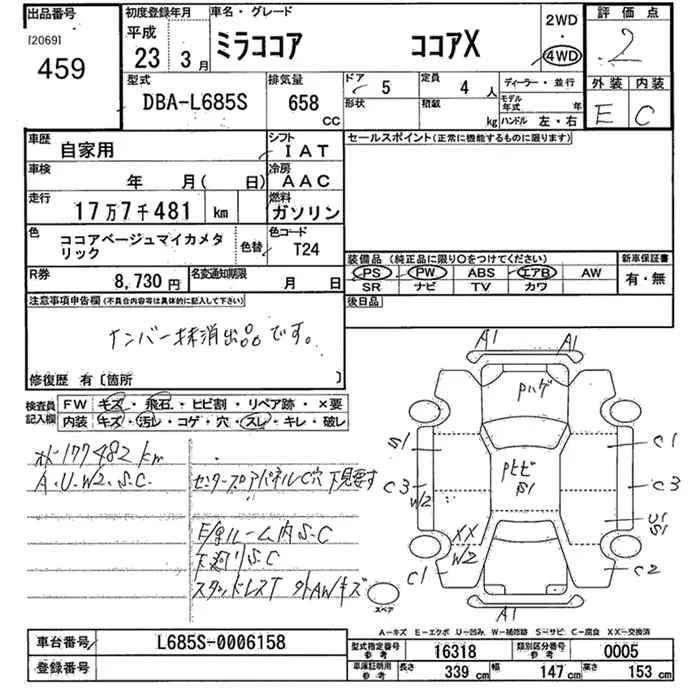 出品番号
[2069]
459
初度登録年月
平成
23年 3月
車名・グレード
ミラココア ココアX
2WD
・
4WD
評価点
2
型式
DBA-L685S
排気量
658
CC
ドア 5
形状
定員 4人
積載 kg
ディーラー・並行
モデル年式 年
ハンドル 左・右
外装 内装
E C
車歴
自家用
シフト
IAT
セールスポイント(正常に機能するものに限ります)
車検
年 月( 日)
冷房
AAC
走行
17万7千481 km
燃料
ガソリン
色
ココアベージュマイカメタリック
色替
色コード
T24
装備品(純正品に限り○をつけてください)
新車保証書
PS PW ABS エアB AW
SR ナビ TV カワ
有・無
R券
8,730円
名変通知期限
月 日
後日品
注意事項申告欄(不具合内容等は具体的に記入して下さい)
ナンバー抹消出品です。
修復歴 有〔箇所 〕
検査員記入欄
FW キズ・飛石・ヒビ割・リペア跡・×要
内装 キズ・汚レ・コゲ・穴・スレ・キレ・破レ
177482km
A.U.W2.S.C.
センターフロアパネルC穴 下見要す
E/ルーム内S.C
下廻りS.C
外AWキズ
A1 A1
Pハゲ
S1
C1
C3
W2
PヒビB1
C3
U1
S1
XX
W2
C1
C2
A1
スペア
A-キズ E-エクボ U-凹み W-補修跡 S-サビ C-腐食 XX-交換済
車台番号
L685S-0006158
登録番号
型式指定番号参考
16318
類別区分番号参考
0005
車庫証明用参考
長さ 339cm 幅 147cm 高さ 153cm